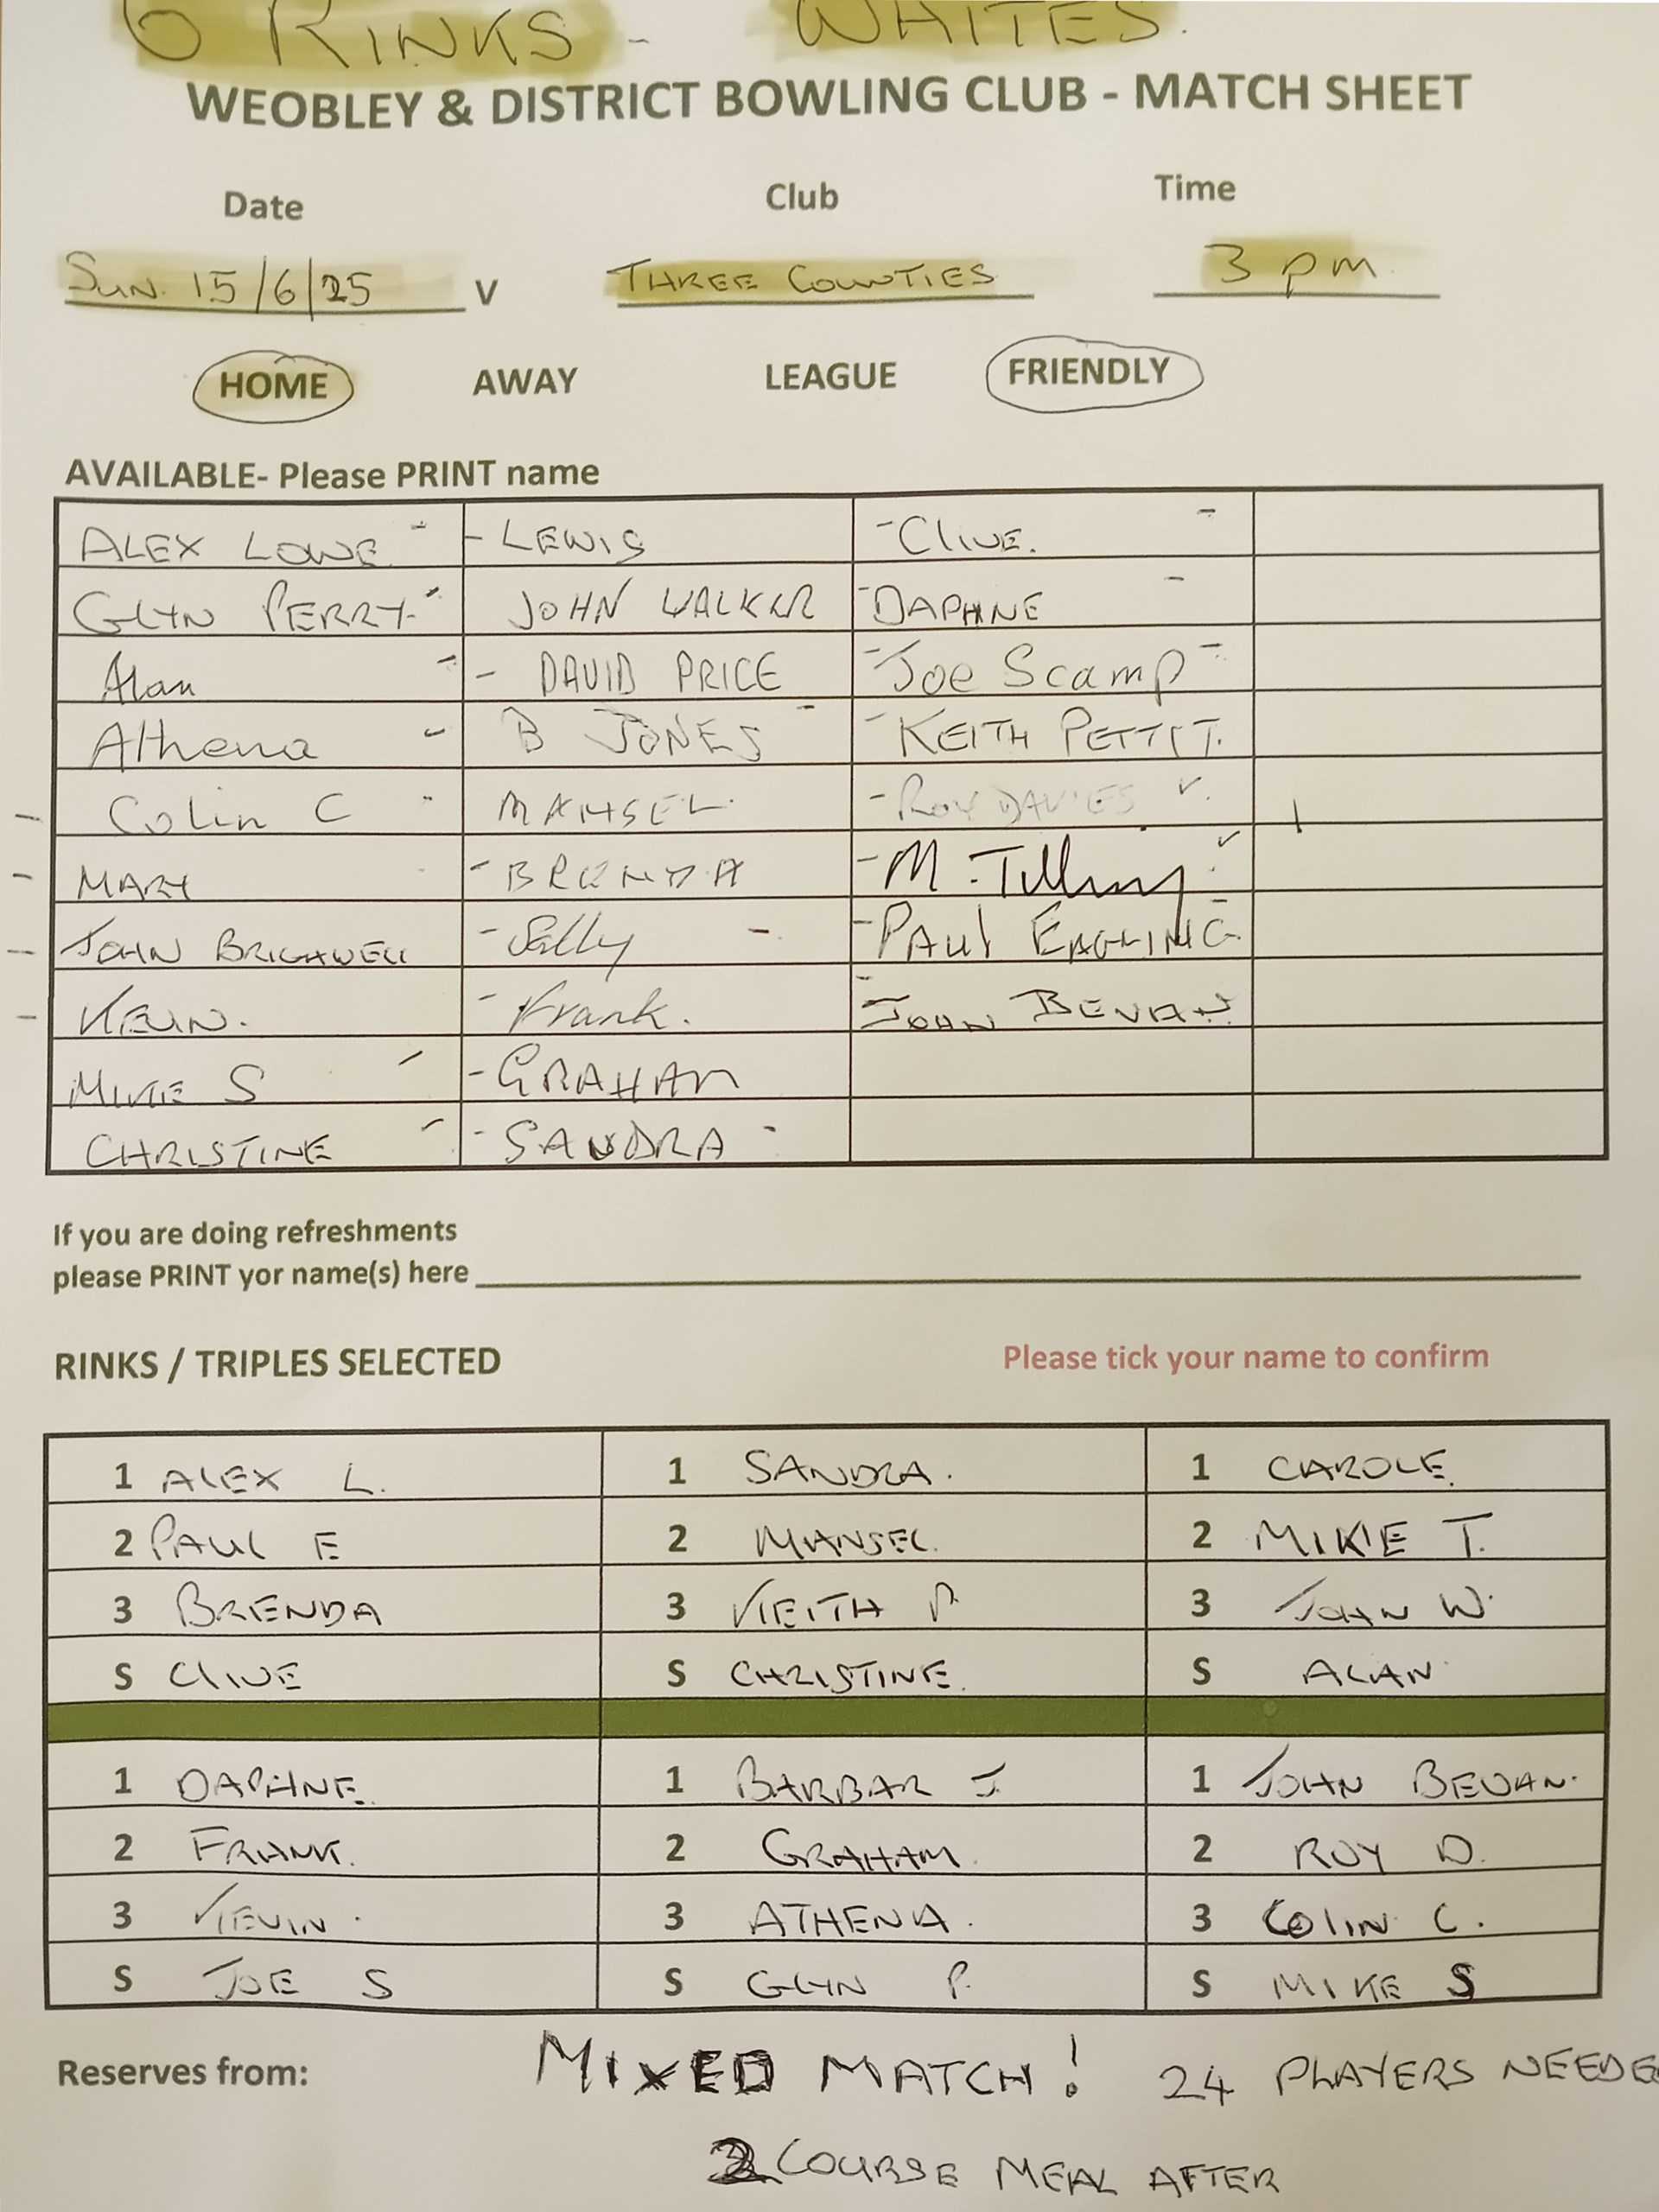 6 RINKS - WHITES.
WEOBLEY & DISTRICT BOWLING CLUB - MATCH SHEET
Date Club Time
SUN. 15/6/25 V THREE COUNTIES 3 pm.
HOME AWAY LEAGUE FRIENDLY
AVAILABLE- Please PRINT name
ALEX LOWE - - LEWIS - CLIVE. -
GLYN PERRY - JOHN WALKER - DAPHNE -
Alan - - DAVID PRICE - Joe Scamp -
Athena - B JONES - - KEITH PETTIT.
- Colin C - MANSEL - ROY DAVIES ✓.
- MARY - - BRENDA - M. Tilling ✓
- JOHN BRIGHWELL - Sally - - PAUL EAGLING -
- KEVIN. - Frank. - JOHN BEVAN
MIKE S - - GRAHAM
CHRISTINE - - SANDRA -
If you are doing refreshments
please PRINT yor name(s) here
RINKS / TRIPLES SELECTED Please tick your name to confirm
1 ALEX L. 1 SANDRA. 1 CAROLE.
2 PAUL E 2 MANSEL. 2 MIKE T.
3 BRENDA 3 KEITH P. 3 JOHN W.
S CLIVE S CHRISTINE. S ALAN
1 DAPHNE. 1 BARBAR J 1 JOHN BEVAN.
2 FRANK. 2 GRAHAM. 2 ROY D.
3 KEVIN. 3 ATHENA. 3 COLIN C.
S JOE S S GLYN P. S MIKE S
Reserves from: MIXED MATCH! 24 PLAYERS NEEDE
2 COURSE MEAL AFTER